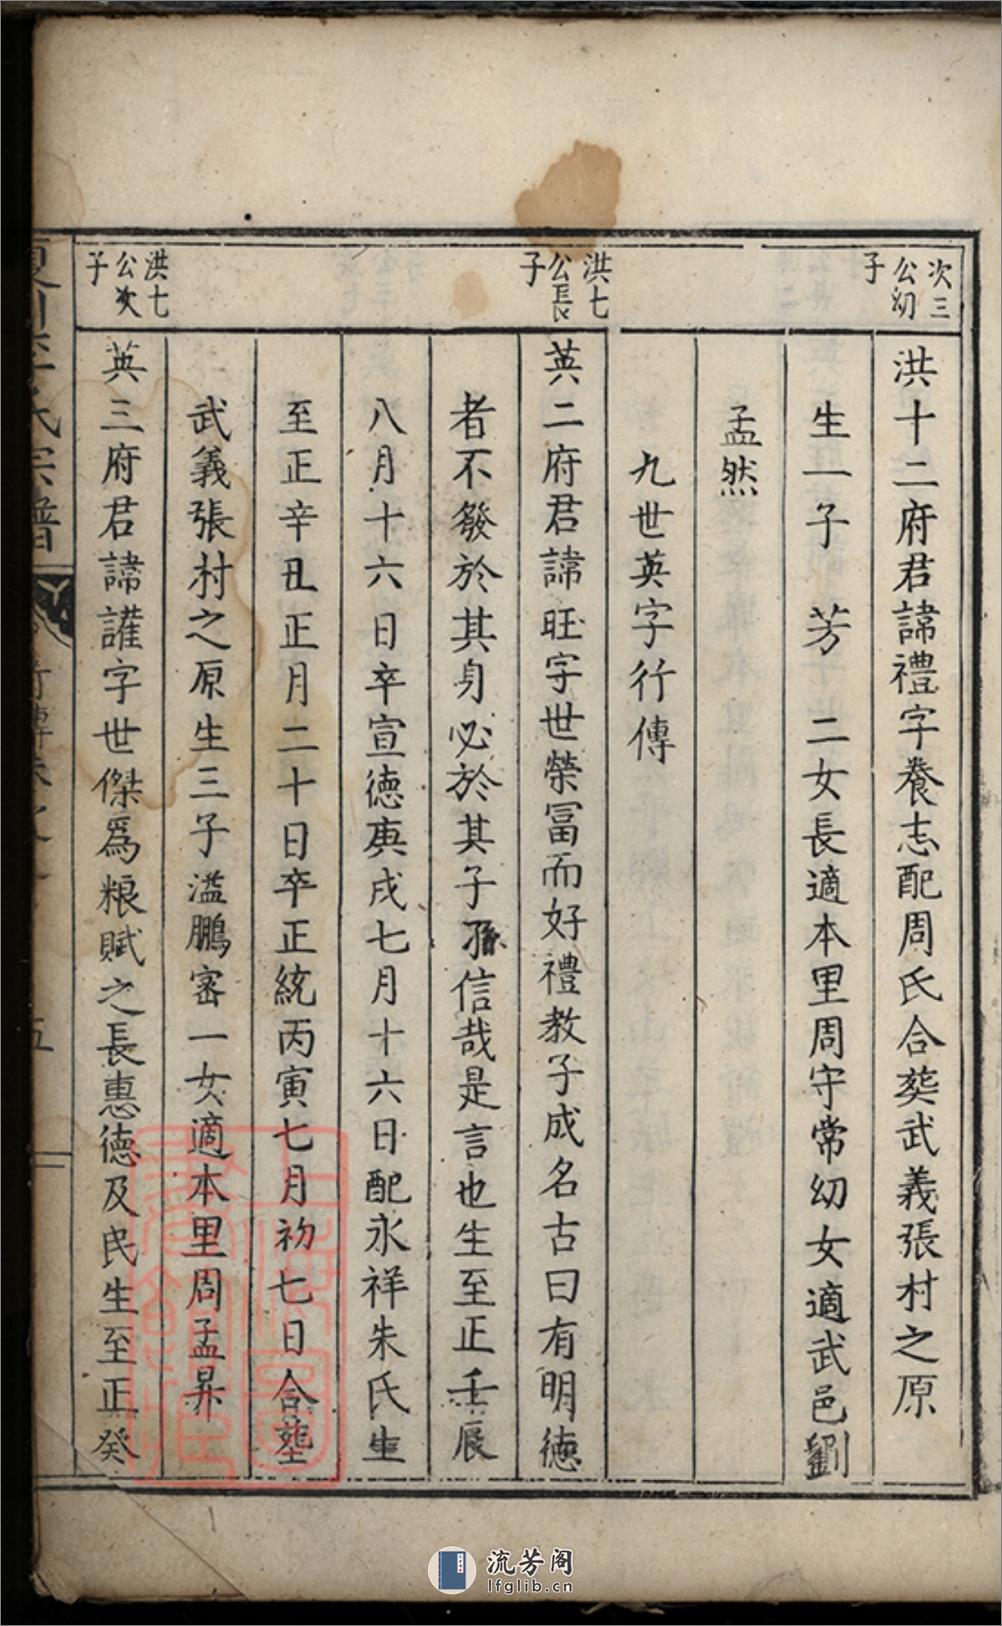 次三
公幼
子
洪十二府君諱禮字養志配周氏合葬武義張村之原
生一子 芳 二女長適本里周守常幼女適武邑劉
孟然
九世英字行傳
洪七
公長
子
英二府君諱旺字世榮富而好禮教子成名古曰有明德
者不發於其身必於其子孫信哉是言也生至正壬辰
八月十六日卒宣德庚戌七月十六日配永祥朱氏生
至正辛丑正月二十日卒正統丙寅七月初七日合塟
武義張村之原生三子溢鵬審一女適本里周孟昇
洪七
公次
子
英三府君諱讙字世傑爲粮賦之長惠德及民生至正癸
氏宗譜
行傳
五
流芳阁
lfglib.cn